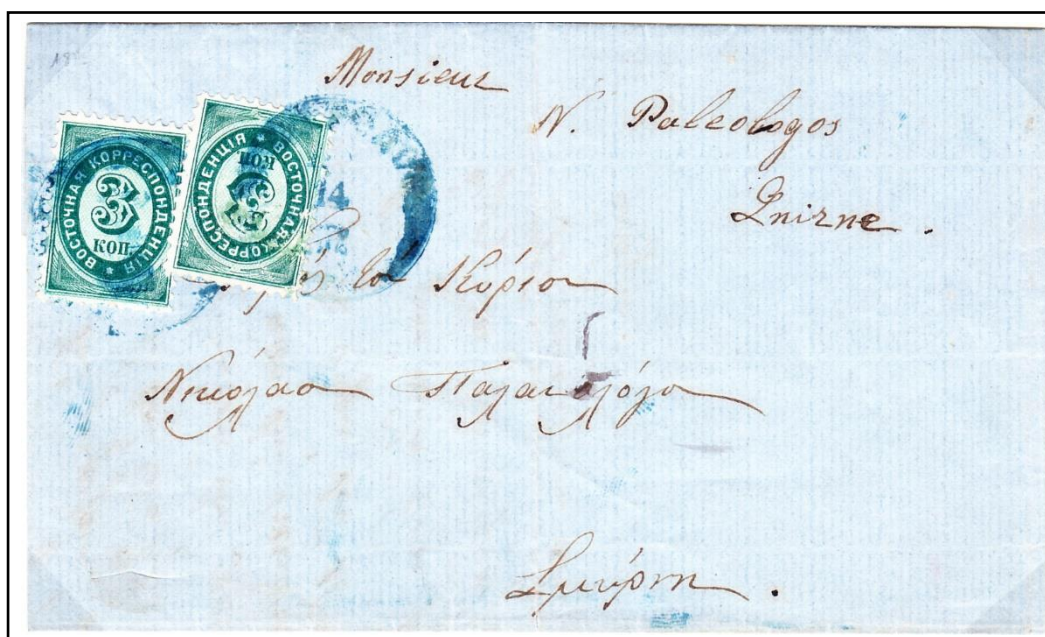 Monsieur
N. Paleologos
Smirne.
ВОСТОЧНАЯ КОРРЕСПОНДЕНЦІЯ
3
КОП.
ВОСТОЧНАЯ КОРРЕСПОНДЕНЦІЯ
3
КОП.
τον Κύριον
Νικόλαον Παλαιολόγον
Σμύρνη.